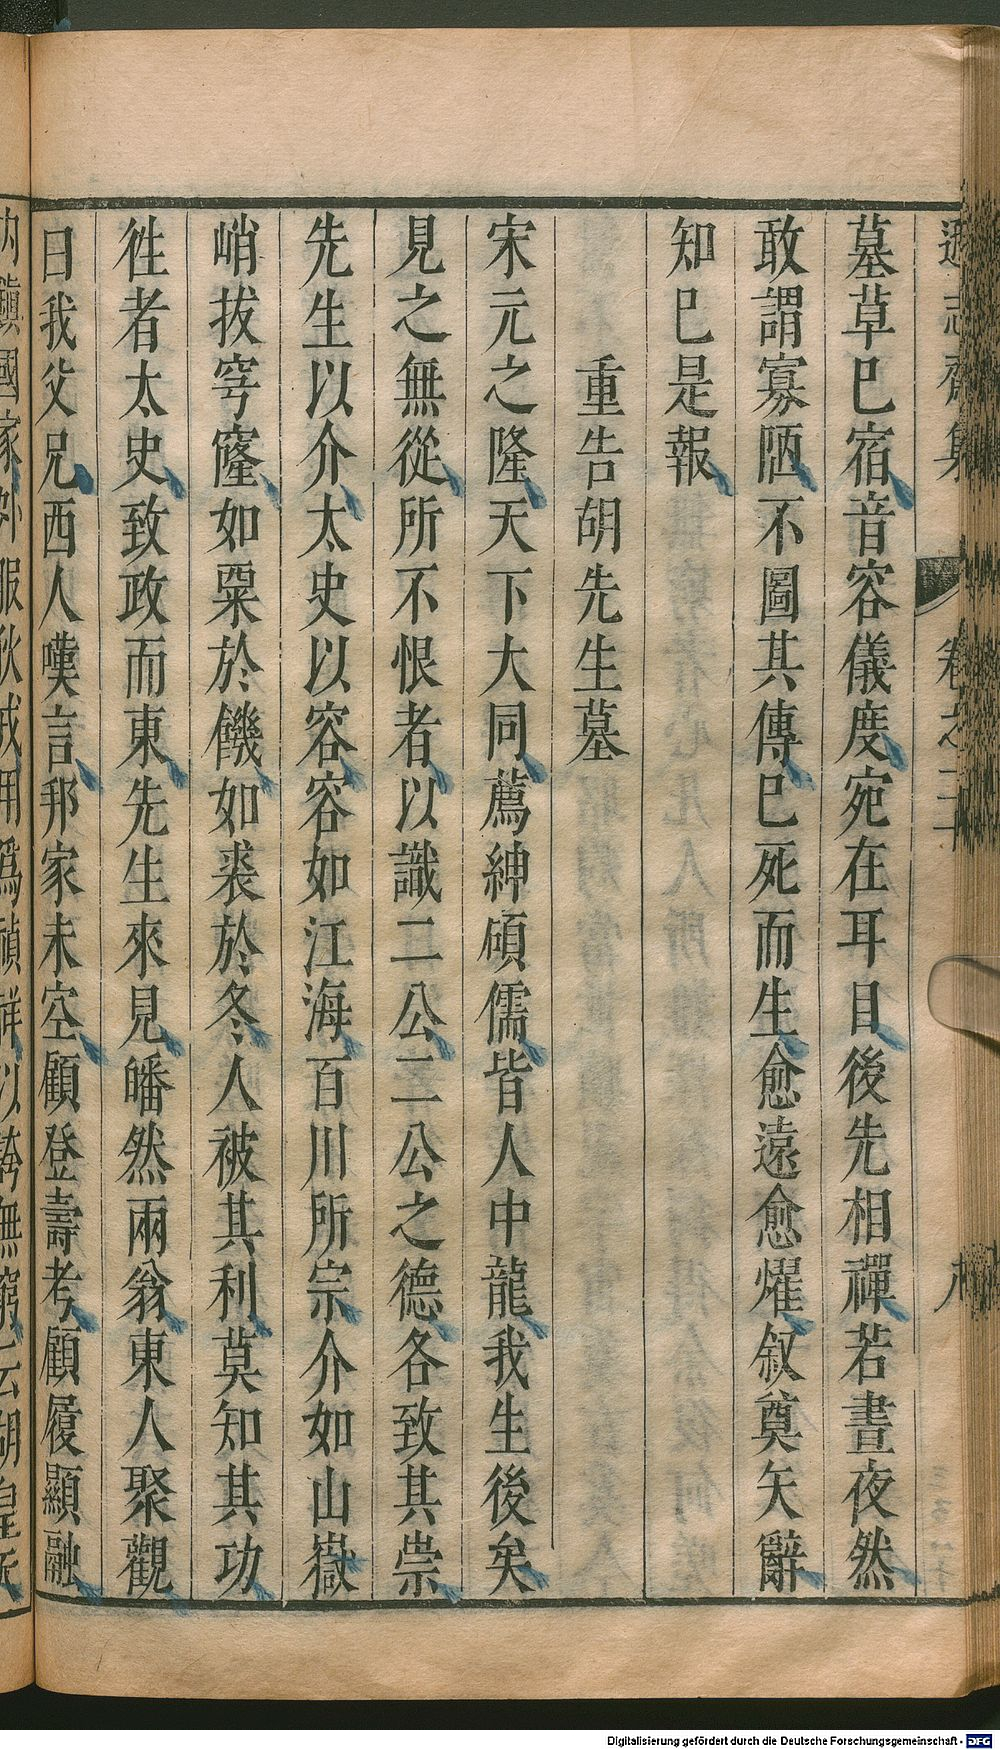 遜志齋集 卷之二十
墓草已宿音容儀度宛在耳目後先相禪若晝夜然
敢謂寡陋不圖其傳已死而生愈遠愈燿叙奠矢辭
知已是報
重告胡先生墓
宋元之隆天下大同薦紳碩儒皆人中龍我生後矣
見之無從所不恨者以識二公二公之德各致其崇
先生以介太史以容容如江海百川所宗介如山嶽
峭拔穹窿如粟於饑如裘於冬人被其利莫知其功
徃者太史致政而東先生來見皤然兩翁東人聚觀
曰我父兄西人嘆言邦家未空顧登壽考顧履顯融
Digitalisierung gefördert durch die Deutsche Forschungsgemeinschaft - DFG